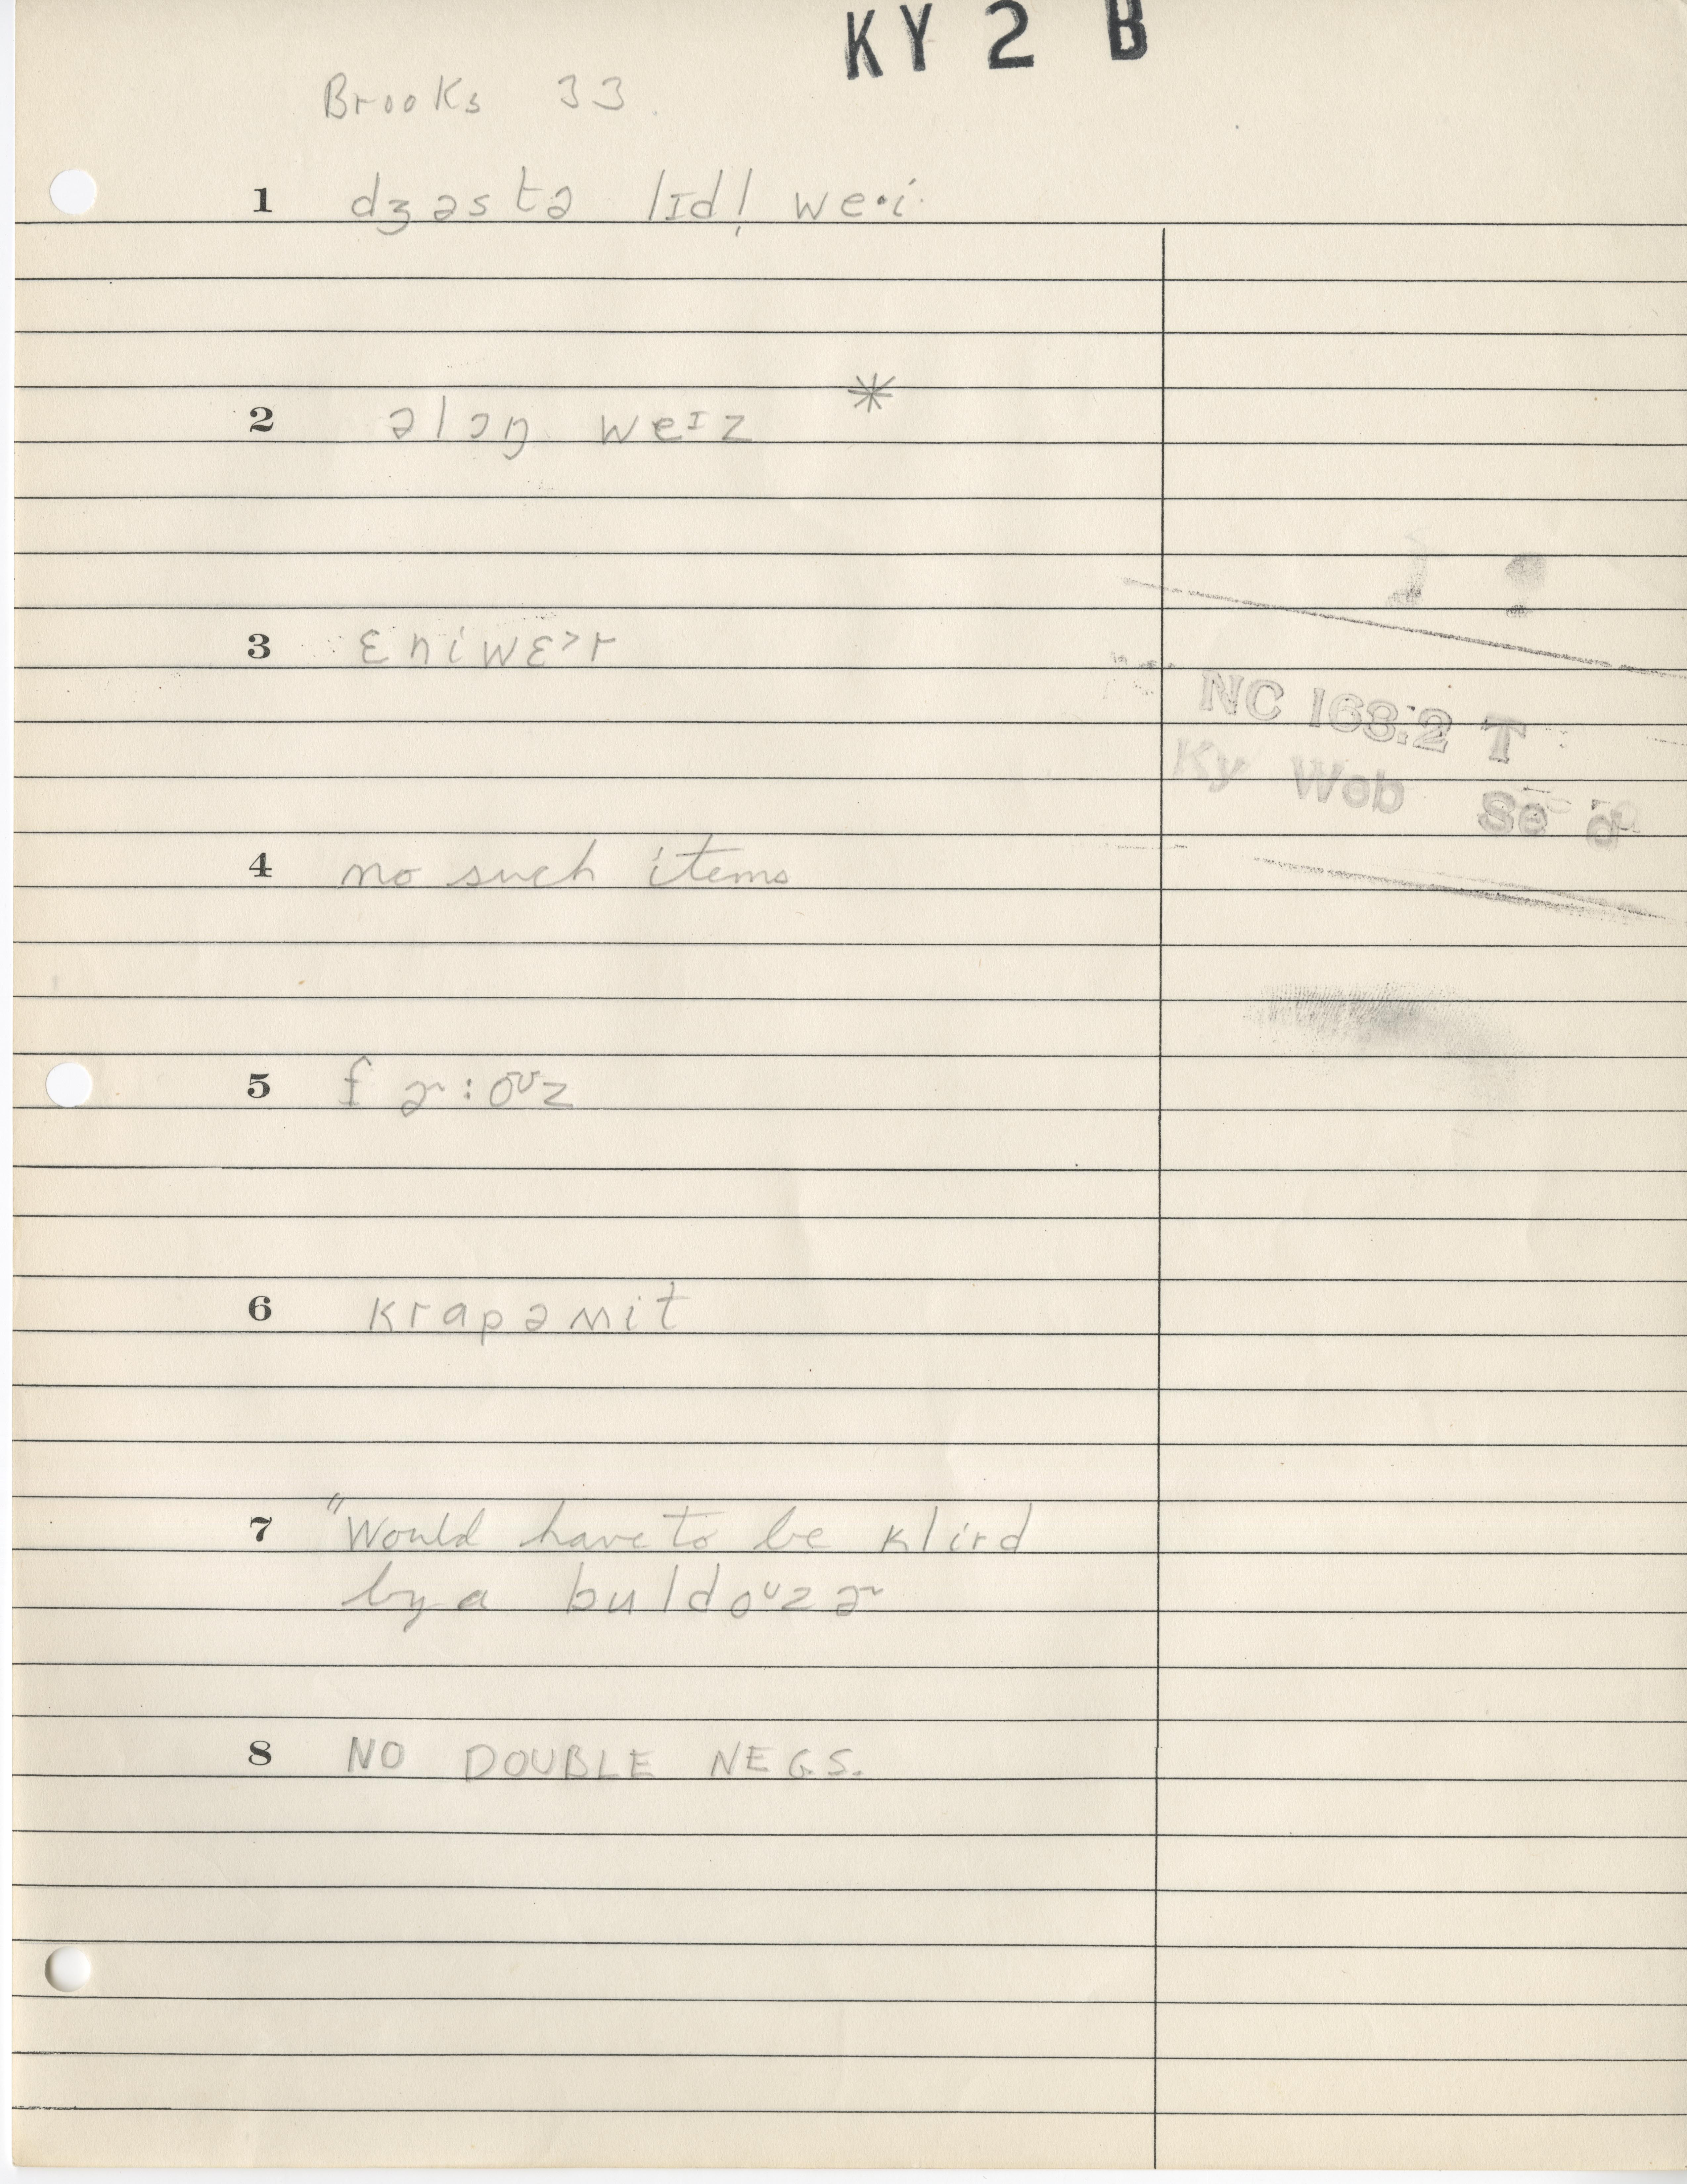 KY 2 B
Brooks 33
1 dʒəstə lɪdl̩ we·i
2 əlɔŋ weᶦz *
3 ɛniwɛ˃r
NC 163.2 T
Ky Web Se
4 no such items
5 fɚ:oᶷz
6 krapəmit
7 "Would have to be klird
by a buldoᶷzɚ
8 NO DOUBLE NEGS.